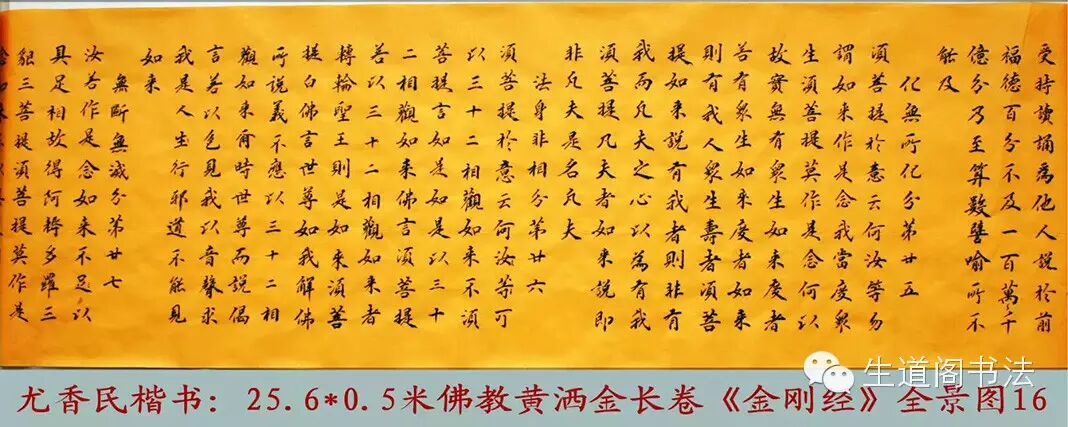 受持讀誦為他人說於前
福德百分不及一百萬千
億分乃至算數譬喻所不
能及
化無所化分第廿五
須菩提於意云何汝等勿
謂如來作是念我當度眾
生須菩提莫作是念何以
故實無有眾生如來度者
若有眾生如來度者如來
則有我人眾生壽者須菩
提如來說有我者則非有
我而凡夫之心以為有我
須菩提凡夫者如來說即
非凡夫是名凡夫
法身非相分第廿六
須菩提於意云何汝等可
以三十二相觀如來不須
菩提言如是如是以三十
二相觀如來佛言須菩提
善以三十二相觀如來者
轉輪聖王則是如來須菩
提白佛言世尊如我解佛
所說義不應以三十二相
觀如來爾時世尊而說偈
言若以色見我以音聲求
我是人生行邪道不能見
如來
無斷無滅分第廿七
汝若作是念如來不足以
具足相故得阿耨多羅三
貌三菩提須菩提莫作是
生道阁书法
尤香民楷书：25.6*0.5米佛教黄洒金长卷《金刚经》全景图16